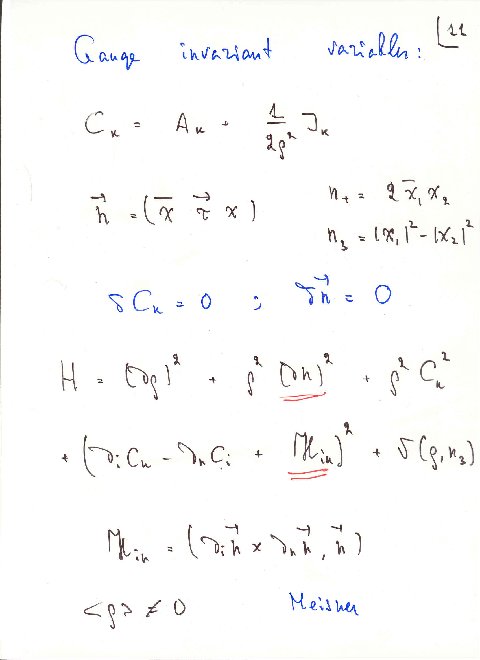 11
Gauge invariant variables:
C_k = A_k + 1/(2ρ²) J_k
n⃗ = (χ̄ τ⃗ χ)
n₊ = 2 χ̄₁ χ₂
n₃ = |χ₁|² - |χ₂|²
δC_k = 0 ; δn⃗ = 0
H = (∂ρ)² + ρ² (∂n)² + ρ² C_k²
+ (∂_i C_k - ∂_k C_i + H_ik)² + V(ρ, n₃)
H_ik = (∂_i n⃗ × ∂_k n⃗, n⃗)
<ρ> ≠ 0 Meisner